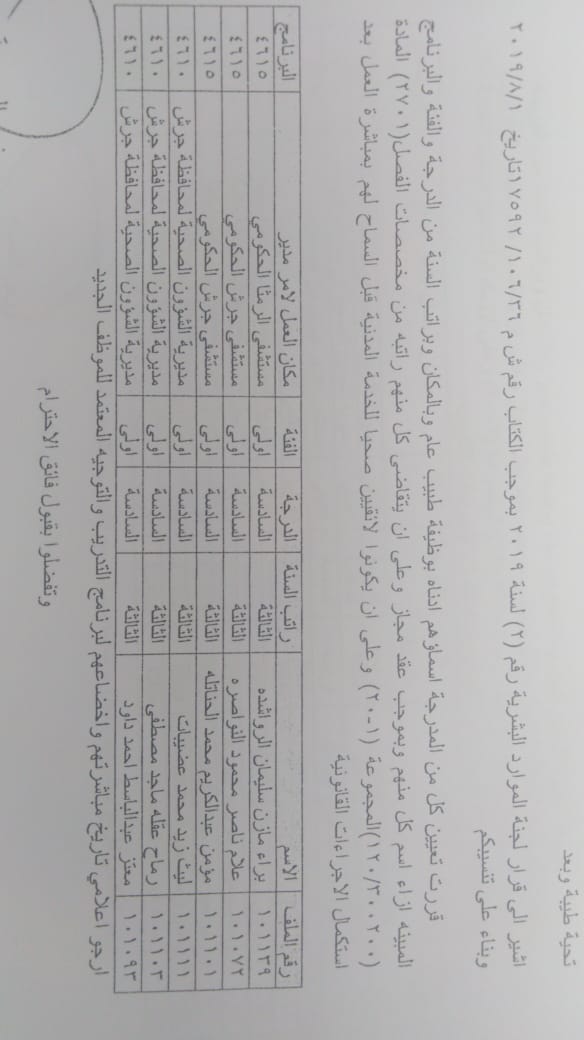 تحية طيبة وبعد
اشير الى قرار لجنة الموارد البشرية رقم (٢) لسنة ٢٠١٩ بموجب الكتاب رقم ش م ١٠٦/٣٦/ ١٧٥٩٢تاريخ ٢٠١٩/٨/١
وبناء على تنسيبكم
قررت تعيين كل من المدرجة اسماؤهم ادناه بوظيفة طبيب عام وبالمكان وبراتب السنة من الدرجة والفئة والبرنامج
المبينه ازاء اسم كل منهم وبموجب عقد مجاز وعلى ان يتقاضى كل منهم راتبه من مخصصات الفصل(٢٧٠١) المادة
(١٢٠/٣٠٠٢٠٠)المجموعة (٢٠-١) وعلى ان يكونوا لائقيين صحيا للخدمة المدنية قبل السماح لهم بمباشرة العمل بعد
استكمال الاجراءات القانونية
رقم الملف الاسم راتب السنة الدرجة الفئة مكان العمل لامر مدير البرنامج
١٠١١٣٩ براء مازن سليمان الرواشده الثالثة السادسة اولى مستشفى الرمثا الحكومي ٤٦١٥
١٠١٠٧٢ علام ناصر محمود النواصره الثالثة السادسة اولى مستشفى جرش الحكومي ٤٦١٥
١٠١١٠١ مؤمن عبدالكريم محمد الحناتله الثالثة السادسة اولى مستشفى جرش الحكومي ٤٦١٥
١٠١١١١ ليث زيد محمد عضيبات الثالثة السادسة اولى مديرية الشؤون الصحية لمحافظة جرش ٤٦١٠
١٠١١٠٣ رماح عقله ماجد مصطفى الثالثة السادسة اولى مديرية الشؤون الصحية لمحافظة جرش ٤٦١٠
١٠١٠٩٣ معتز عبدالباسط احمد داود الثالثة السادسة اولى مديرية الشؤون الصحية لمحافظة جرش ٤٦١٠
ارجو اعلامي تاريخ مباشرتهم واخضاعهم لبرنامج التدريب والتوجيه المعتمد للموظف الجديد
وتفضلوا بقبول فائق الاحترام